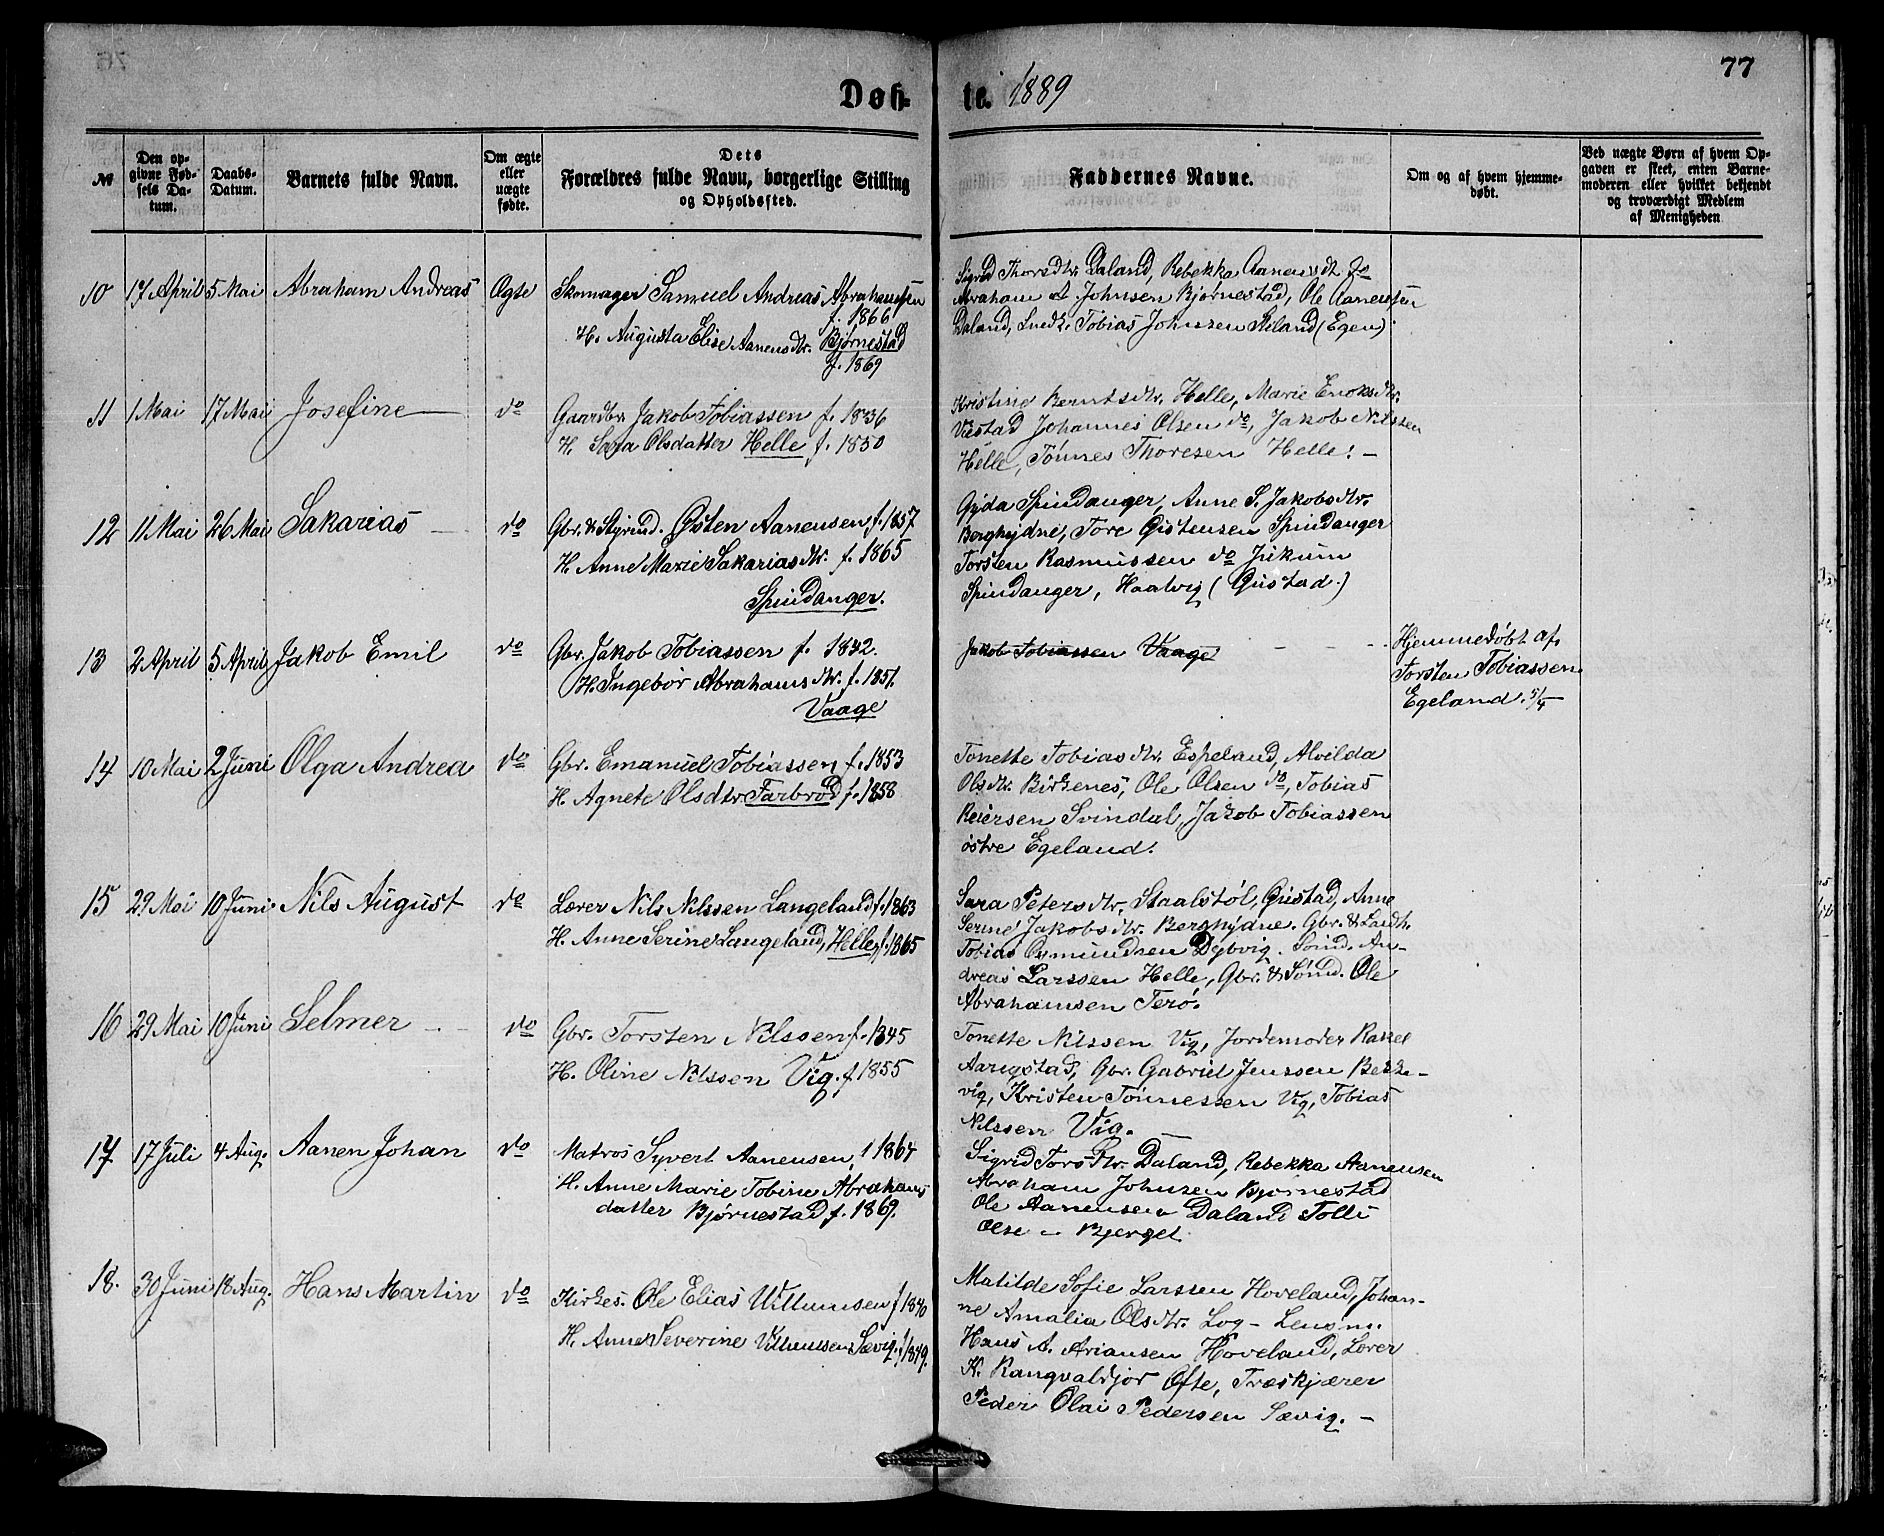 77
Døb- te. 1889
№
Den opgivne Fødsels Datum.
Daabs-Datum.
Barnets fulde Navn.
Om ægte eller uægte fødte.
Dets Forældres fulde Navn, borgerlige Stilling og Opholdssted.
Faddernes Navne.
Om og af hvem hjemmedøbt.
Ved uægte Børn af hvem Opgaven er skeet, enten Barnemoderen eller hvilket bekjendt og troværdigt Medlem af Menigheden
10 17 April 5 Mai Abraham Andreas Ægte
Skomager Samuel Andreas Abrahamsen
f. 1866
H. Augusta Elise Aanensdtr. Bjørnestad
f. 1869
Sigrid Thorsdtr. Daland, Rebekka Aanensdt do
Abraham A Johnsen Bjørnestad, Ole Aanensen
Daland, Snedk. Tobias Johnsen (Egen).
11 1 Mai 17 Mai Josefine do
Gaardbr. Jakob Tobiassen f. 1836
H. Sara Olsdatter Helle f. 1850
Kristine Berntsdtr. Helle, Marie Enoksdtr.
Johannes Olsen do, Jakob Nilssen
Helle, Tønnes Thoresen Helle. –
12 11 Mai 26 Mai Sakarias do
Gbr. & Østen Aanensen f. 1857
H. Anne Marie Sakariasdtr. f. 1865
Spindanger.
Gyda Spindanger, Anne S. Jakobsdtr.
Berghydne, Tore Øistensen Spindanger
Torsten Rasmussen do
Spindanger, Haalvig (Qustad.)
13 2 April 5 April Jakob Emil do
Gbr. Jakob Tobiassen f. 1842.
H. Ingebor Abrahamsdtr. f. 1851.
Vaage
Jakob Tobiassen Vaage
Hjemmedøbt af
Torsten Tobiassen
Egeland. 5/4
14 10 Mai 2 Juni Olga Andrea do
Gbr. Emanuel Tobiassen f. 1853
H. Agnete Olsdtr Farbrød f. 1858
Tonette Tobiasdtr. Espeland, Alvilda
Olsdtr. Birkenes, Ole Olsen do, Tobias
Reiersen Svindal, Jakob Tobiassen
østre Egeland.
15 29 Mai 10 Juni Nils August do
Lærer Nils Nilssen Langeland f. 1863
H. Anne Serine Langeland, Helle f. 1865
Sara Petersdtr. Staalstøl, Qustad, Anne
Serine Jakobsdtr. Berghydne. Gbr. &
Tobias Osmundsen Dybvig. An-
dreas Larssen Helle, Gbr. & Ole
Abrahamsen Terø.
16 29 Mai 10 Juni Selmer do
Gbr. Torsten Nilssen f. 1845
H. Oline Nilssen Vig. f 1855
Tonette Nilssen Vig, Jordemoder Rakel
Aarnstad, Gbr. Gabriel Jenssen Bekke-
vig, Kristen Tønnessen Vig, Tobias
Nilssen Vig.
17 17 Juli 4 Aug. Aanen Johan do
Matros Syvert Aanensen, f 1864
H. Anne Marie Tobine Abrahams
datter Bjørnestad f. 1869.
Sigrid Torsdtr. Daland, Rebekka Aanensen
Abraham Johnsen Bjørnestad
Ole Aanensen Daland Tolli
Olse – Bjerget
18. 30 Juni 18 Aug. Hans Martin do
Kirkes. Ole Elias Villumsen f 1840
H. Anne Severine Villumsen Sævig. f 1849.
Matilde Sofie Larssen Hoveland, Johan-
ne Amalia Olsdtr. Log – Lensm.
Hans A. Ariansen Hoveland, Lærer
K. Rangvaldjor Ofte, Træskjærer
Peder Olai Pedersen Sævig. –